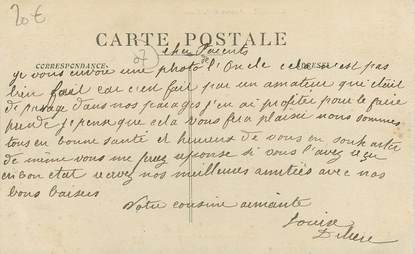 20€
CARTE POSTALE
07
cher Parents
CORRESPONDANCE
ADRESSE
je vous envoie une photo de l'Oncle cela n'est pas
bien fait car c'en fait par un amateur qui était
de passage dans nos parages j'en ai profitée pour le faire
prendre je pense que cela vous fera plaisir nous sommes
tous en bonne santé et heureux de vous en souhaiter
de même vous me ferez réponse si vous l'avez reçu
en bon état recevez nos meilleures amitiés avec nos
bons baisers
Votre cousine aimante
Louise